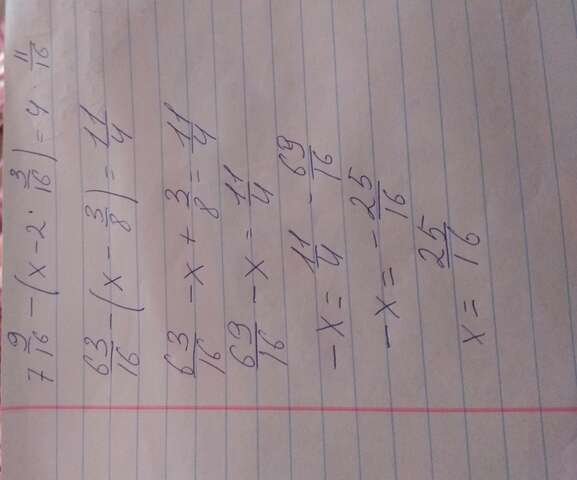 7 9/16 - (x - 2 · 3/16) = 4 · 11/16
63/16 - (x - 3/8) = 11/4
63/16 - x + 3/8 = 11/4
69/16 - x = 11/4
-x = 11/4 - 69/16
-x = - 25/16
x = 25/16